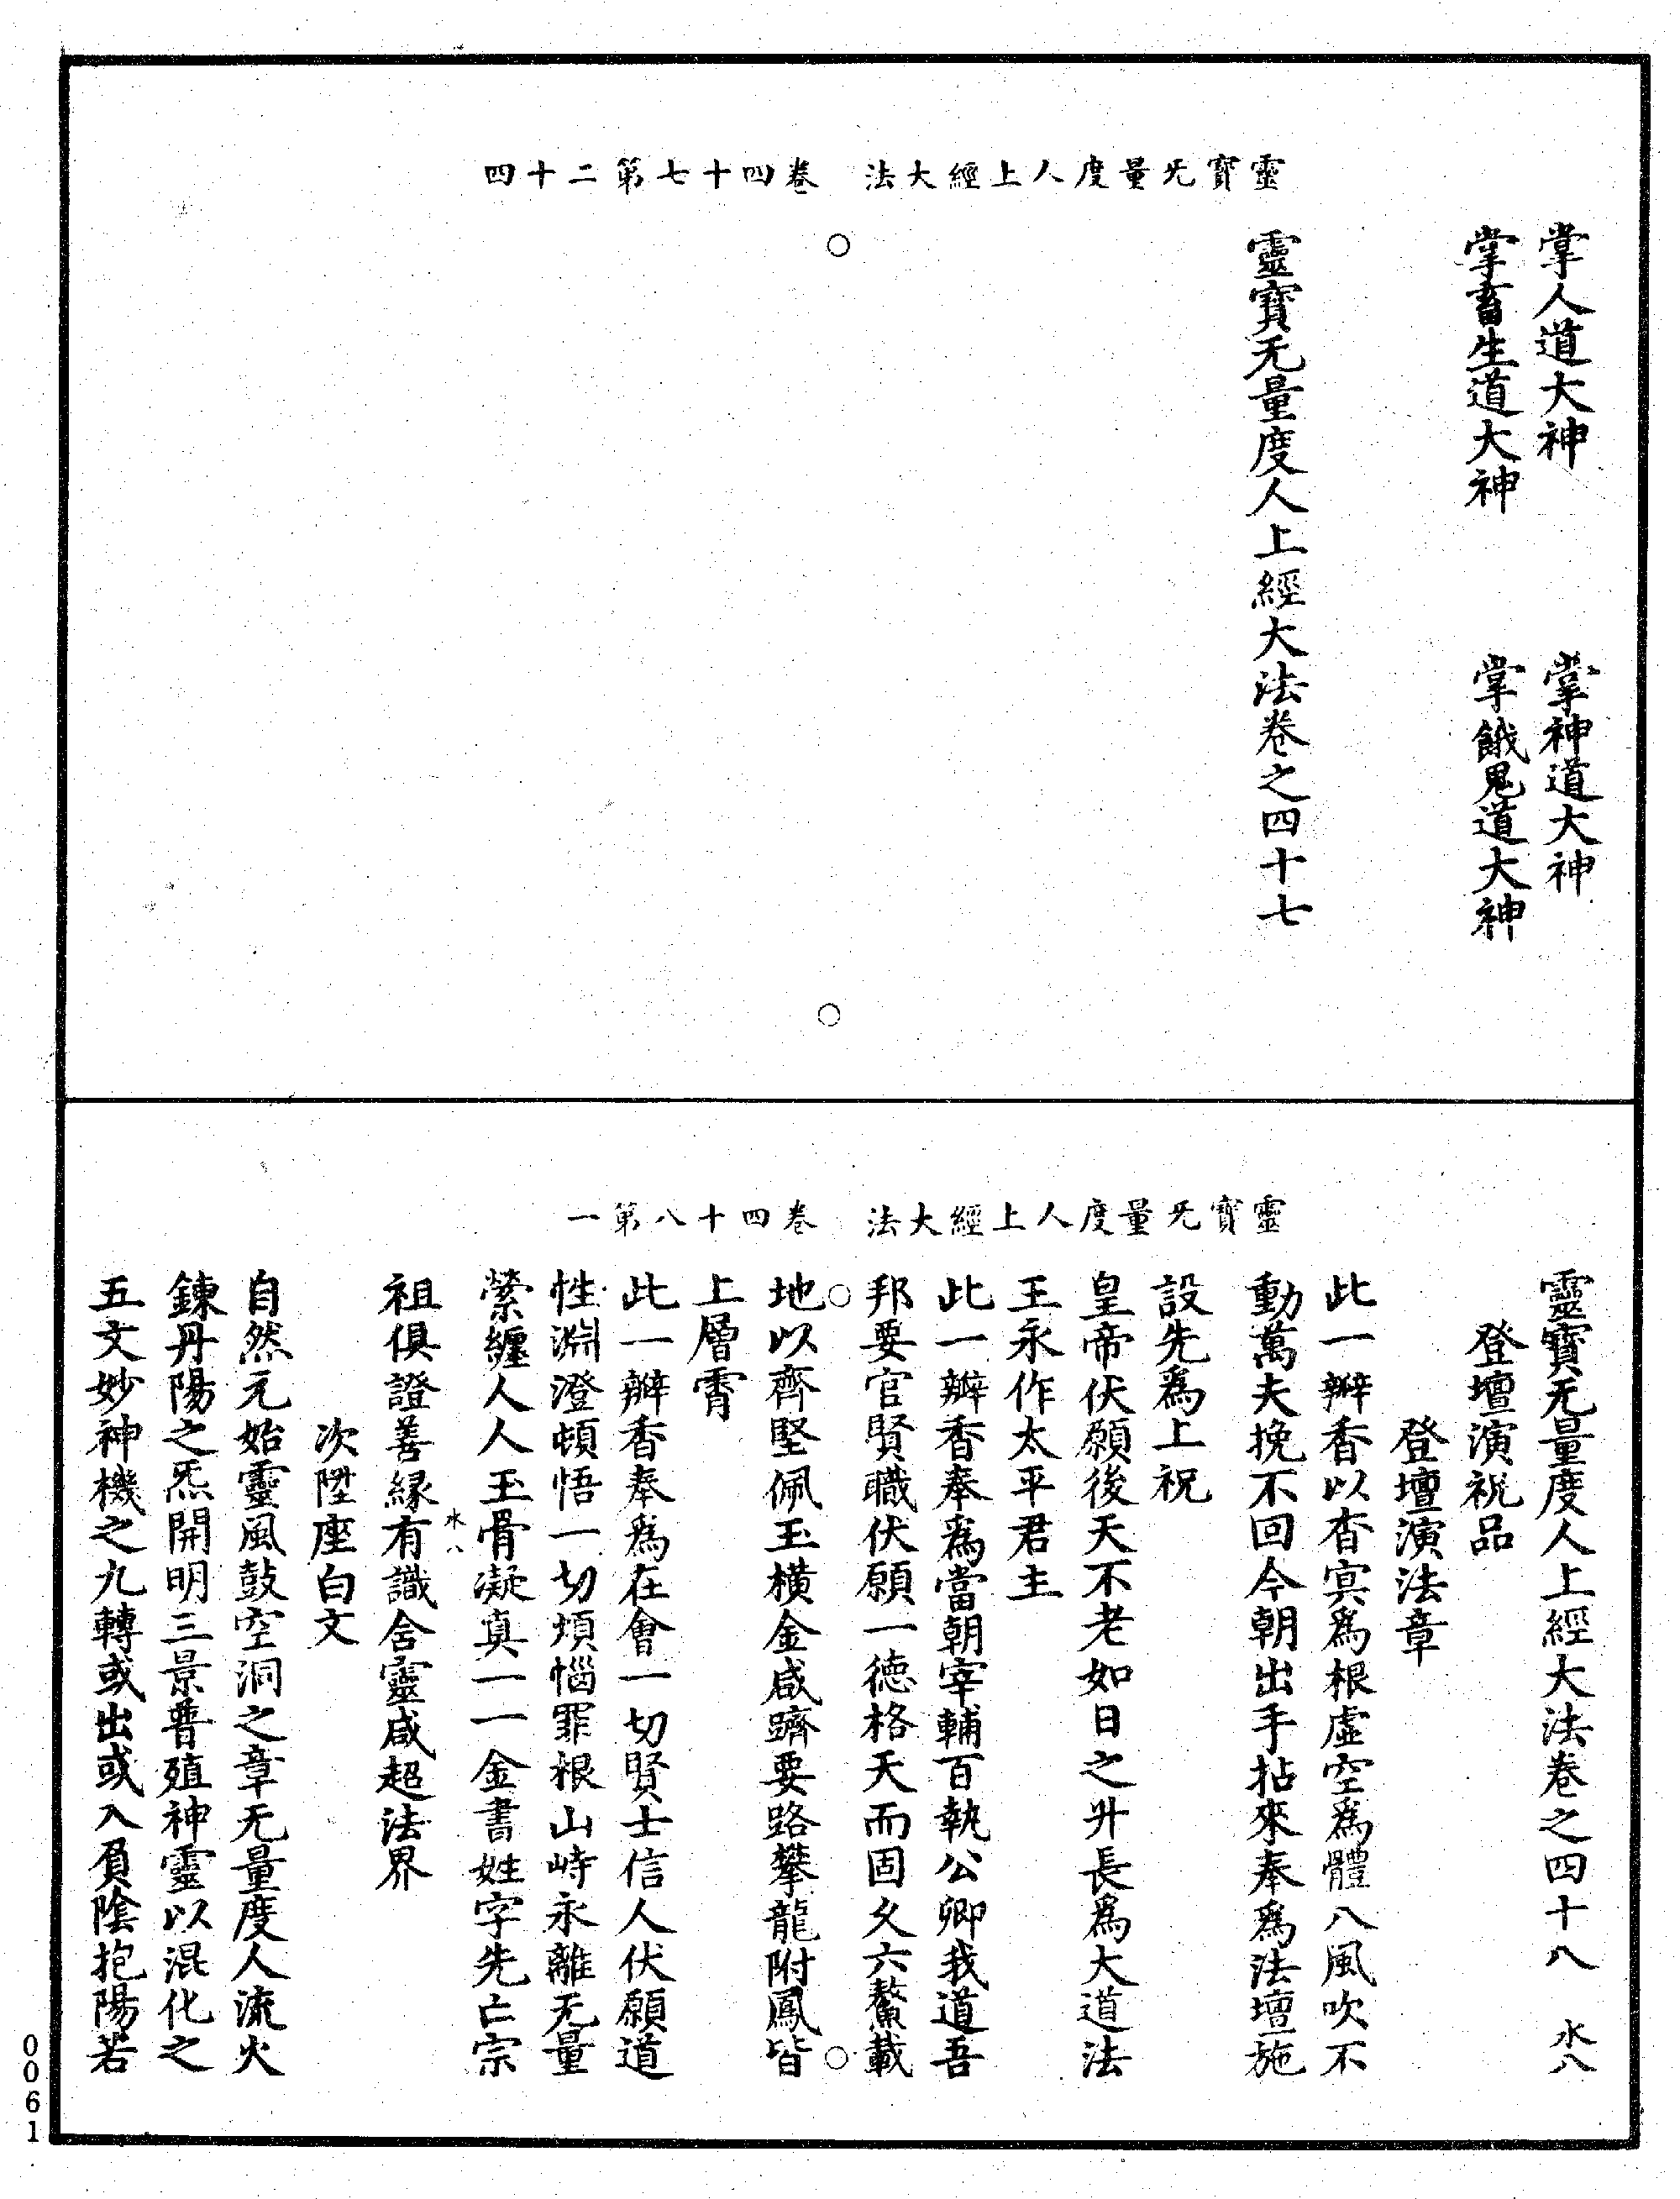 靈寶旡量度人上經大法　卷四十七第二十四
掌人道大神　掌神道大神
掌畜生道大神　掌餓鬼道大神
靈寶无量度人上經大法卷之四十七
靈寶旡量度人上經大法　卷四十八第一
靈寶无量度人上經大法卷之四十八　水八
登壇演祝品
登壇演法章
此一瓣香以杳冥爲根虛空爲體八風吹不
動萬夫挽不回今朝出手拈來奉爲法壇施
設先爲上祝
皇帝伏願後天不老如日之升長爲大道法
王永作太平君主
此一瓣香奉爲當朝宰輔百執公卿我道吾
邦要官賢職伏願一德格天而固久六鰲載
地以齊堅佩玉橫金咸躋要路攀龍附鳳皆
上層霄
此一瓣香奉爲在會一切賢士信人伏願道
性淵澄頓悟一切煩惱罪根山峙永離无量
縈纏人人玉骨凝真一一金書姓字先亡宗
祖俱證善緣有識含靈咸超法界
水八
次陞座白文
自然元始靈風鼓空洞之章无量度人流火
鍊丹陽之炁開明三景普殖神靈以混化之
五文妙神機之九轉或出或入負陰抱陽若
0061